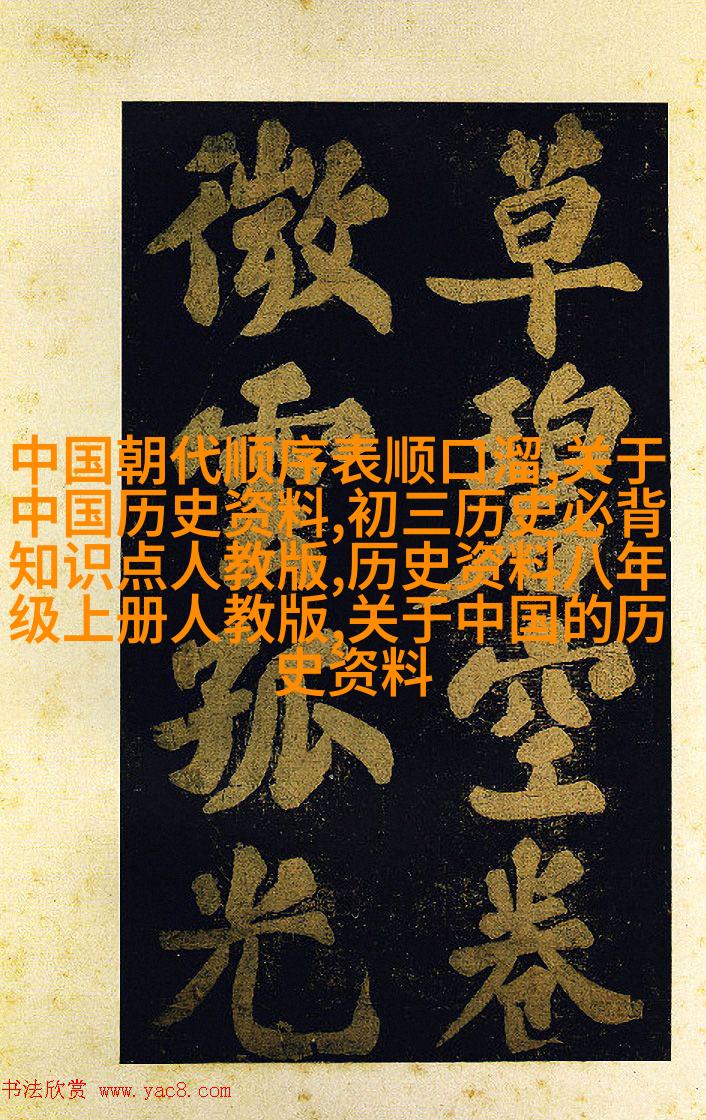 草碧空卷
微雲孤光
中国朝代顺序表顺口溜,关于
中国历史资料,初三历史必背
知识点人教版,历史资料八年
级上册人教版,关于中国的历
史资料
书法欣赏 www.yac8.com